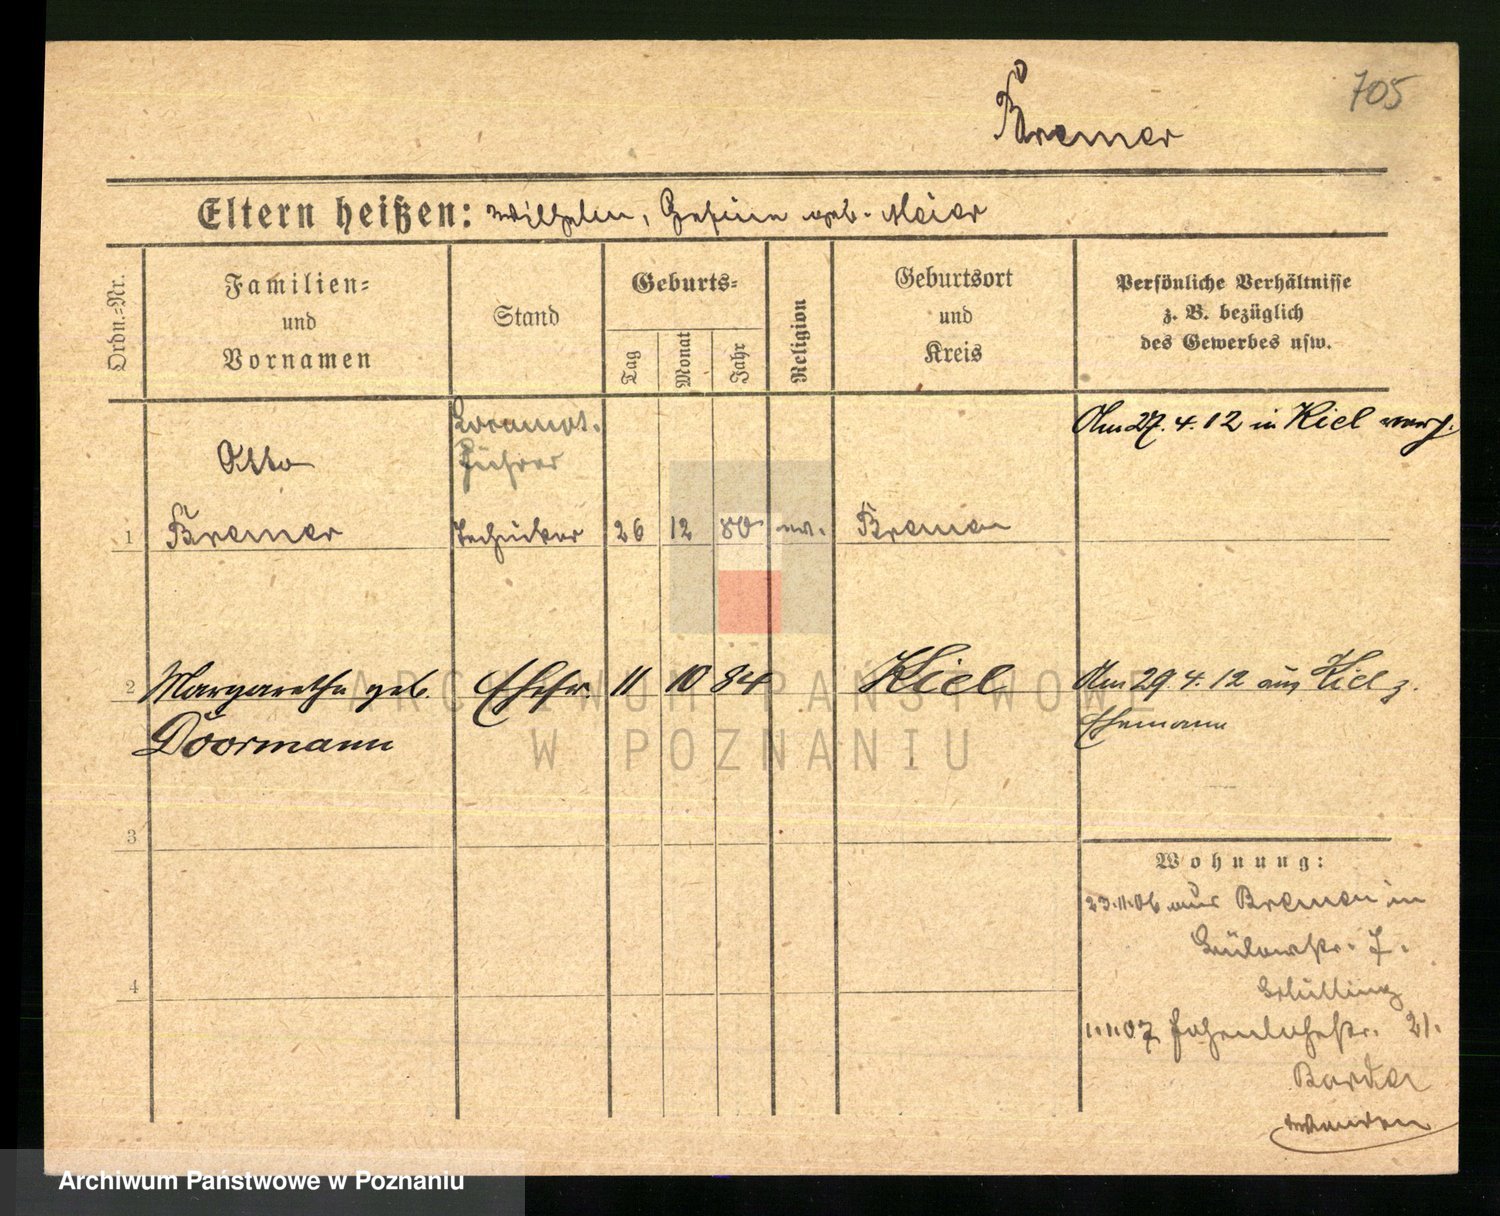 705
Bremer
Eltern heißen: Wilhelm, Gesine geb. Meier
Ordn.=Nr.
Familien=
und
Vornamen
Stand
Geburts=
Tag
Monat
Jahr
Religion
Geburtsort
und
Kreis
Persönliche Verhältnisse
z. B. bezüglich
des Gewerbes usw.
Locomot.
Führer
Am 27. 4. 12 in Kiel verh.
Otto
1 Bremer Techniker 26 12 80 ev. Bremen
2 Margarethe geb. Ehefr. 11 10 84 Kiel Am 29. 4. 12 aus Kiel z.
Doormann Ehemann
3
Wohnung:
23.11.06 aus Bremen in
Bülowstr. 7.
4
Schilling
1.11.07 Hohenlohestr. 21.
ARCHIWUM PAŃSTWOWE
W POZNANIU
Archiwum Państwowe w Poznaniu